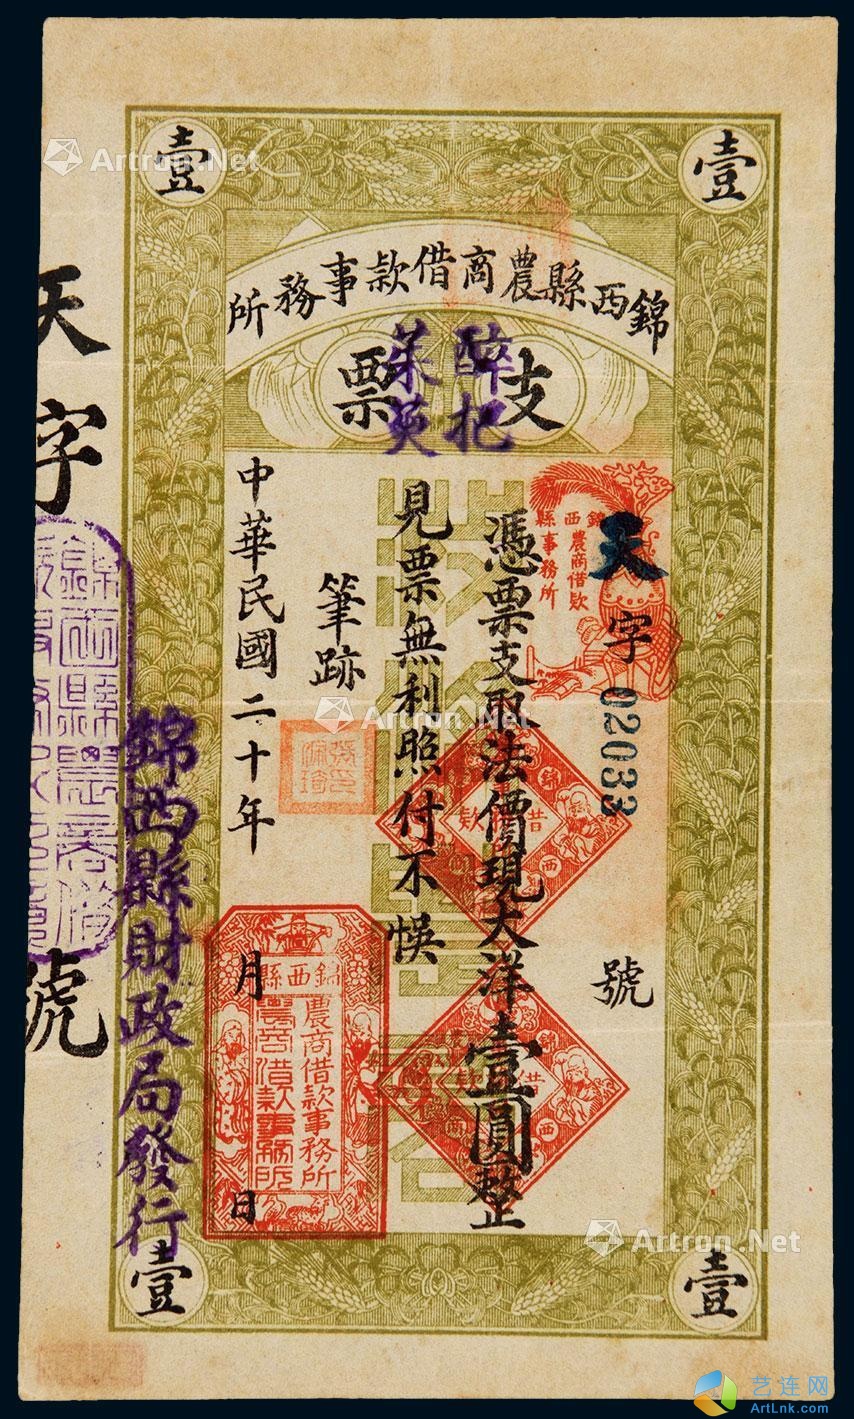 壹
壹
錦西縣農商借款事務所
支票
醉把
茱萸
錦西縣
農商借款
事務所
天字02033號
憑票支取法價現大洋壹圓整
見票無利照付不悞
筆跡
中華民國二十年 月 日
錦西縣
農商借款事務所
農商借款事務所
借
款
西
借
款
西
天字 號
錦西縣財政局發行
壹
壹
Artron.Net
Artron.Net
Artron.Net
艺连网
ArtLnk.com